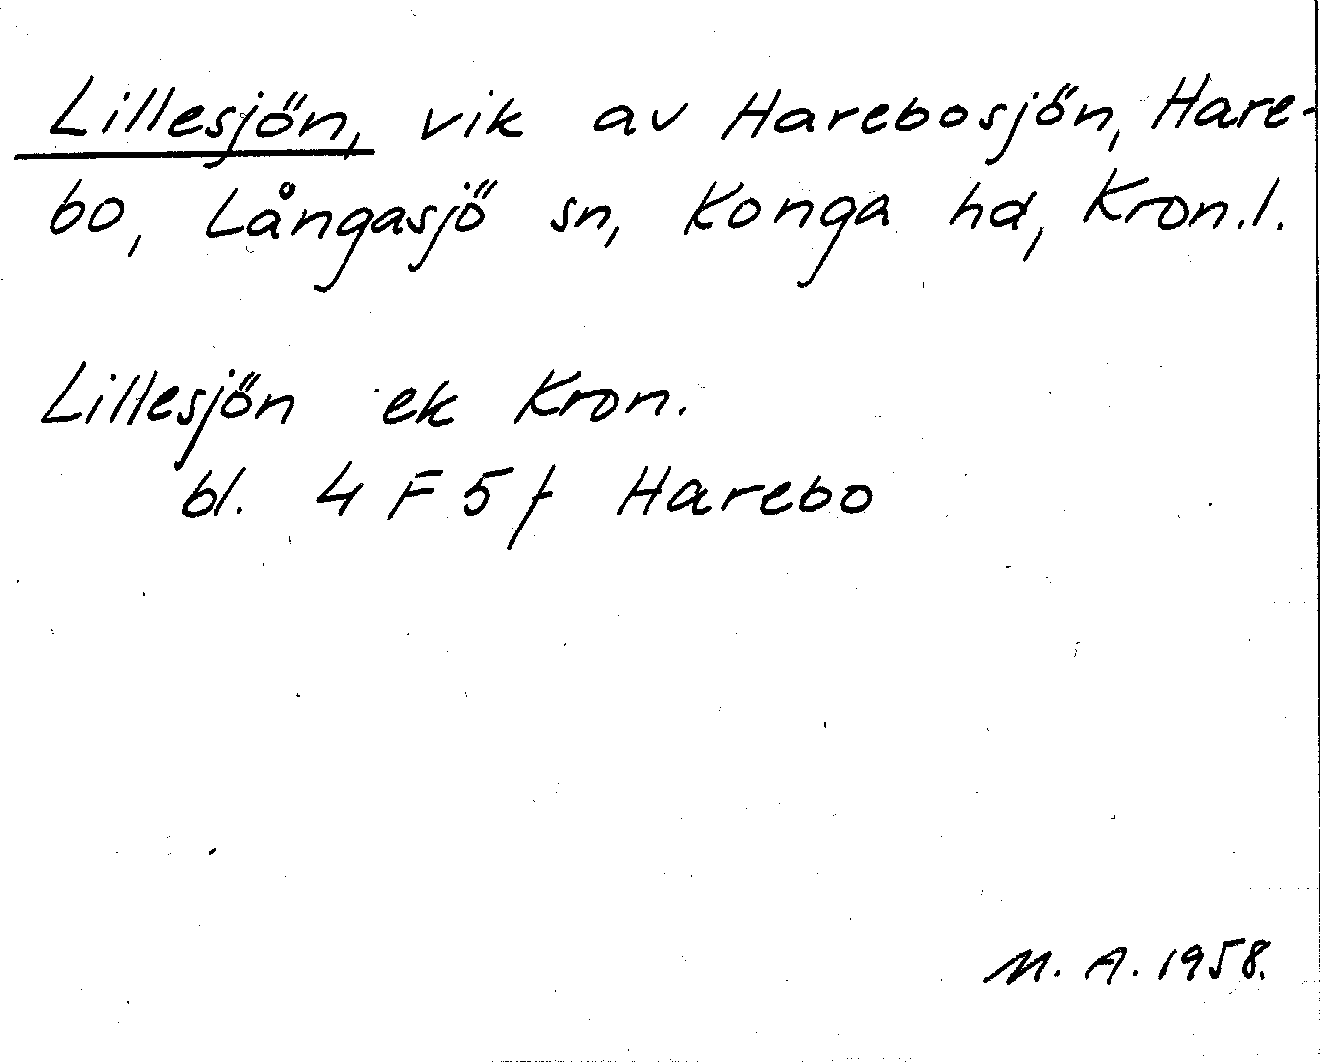 Lillesjön, vik av Harebosjön, Hare-
bo, Långasjö sn, Konga hd, Kron.l.
Lillesjön ek Kron.
bl. 4 F 5 f Harebo
M. A. 1958.